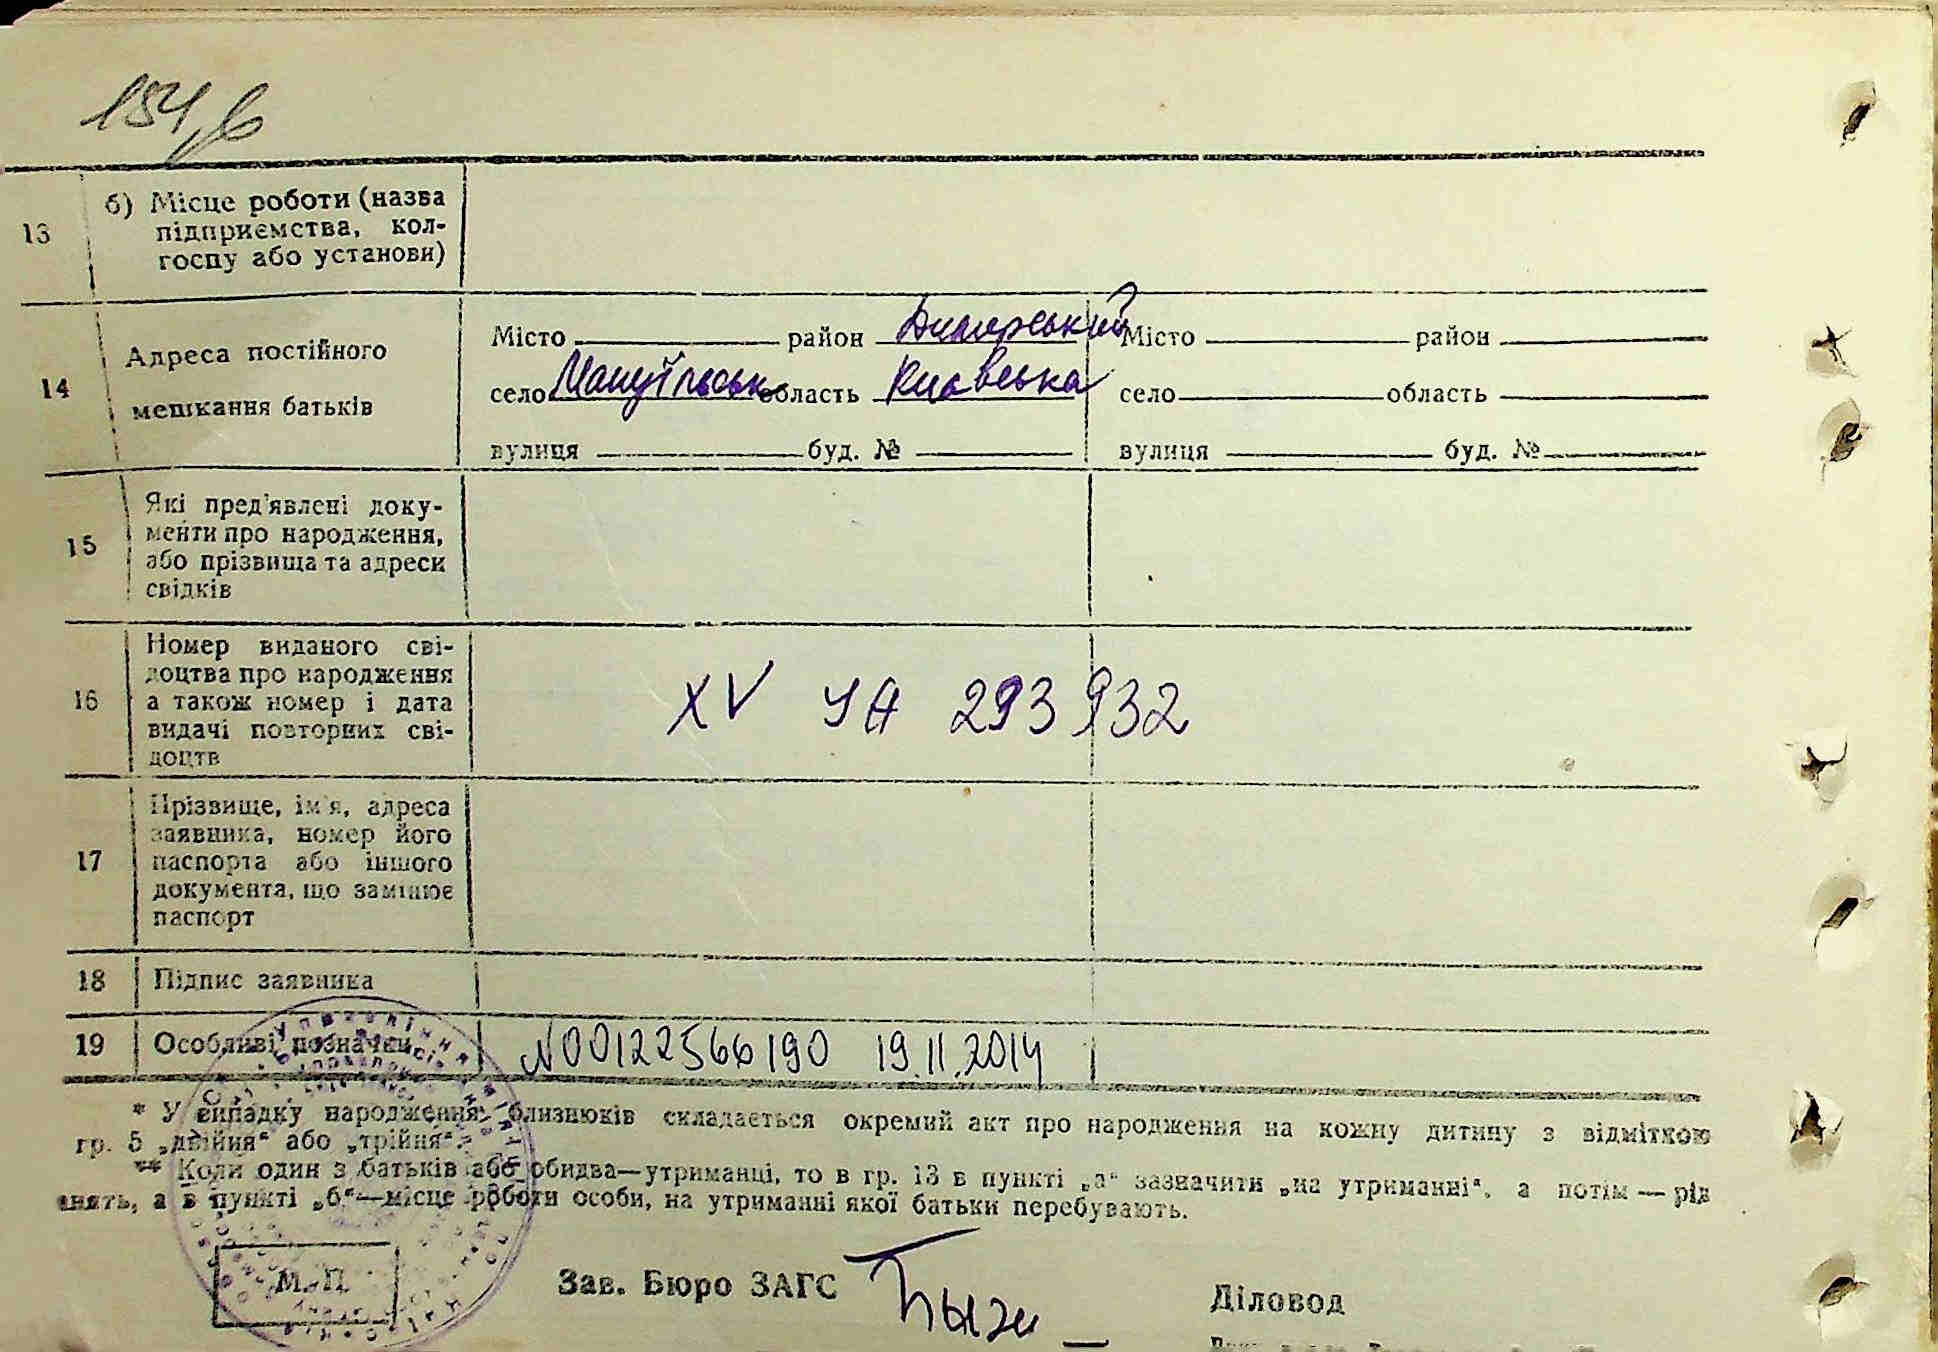 154,б
13
б) Місце роботи (назва
підприємства, кол-
госпу або установи)
14
Адреса постійного
мешкання батьків
Місто район Димерський
село Мануїльськ область Киівська
вулиця буд. №
Місто район
село область
вулиця буд. №
15
Які пред'явлені доку-
менти про народження,
або прізвища та адреси
свідків
16
Номер виданого сві-
доцтва про народження
а також номер і дата
видачі повторних сві-
доцтв
XV УА 293932
17
Прізвище, ім'я, адреса
заявника, номер його
паспорта або іншого
документа, що замінює
паспорт
18
Підпис заявника
19
Особливі позначки
N00122566190 19.11.2014
* У випадку народження близнюків складається окремий акт про народження на кожну дитину з відміткою
гр. 5 „двійня“ або „трійня“.
** Коли один з батьків або обидва—утриманці, то в гр. 13 в пункті „а“ зазначити „на утриманні“, а потім — рід
анять, а в пункті „б“—місце роботи особи, на утриманні якої батьки перебувають.
М. П.
Зав. Бюро ЗАГС
Діловод